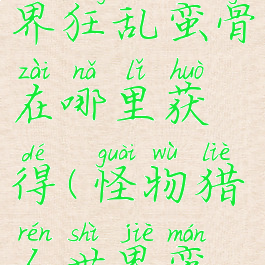 界狂乱蛮骨
zài nǎ lǐ huò
在哪里获
dé guài wù liè
得(怪物猎
rén shì jiè mán
人世界蛮